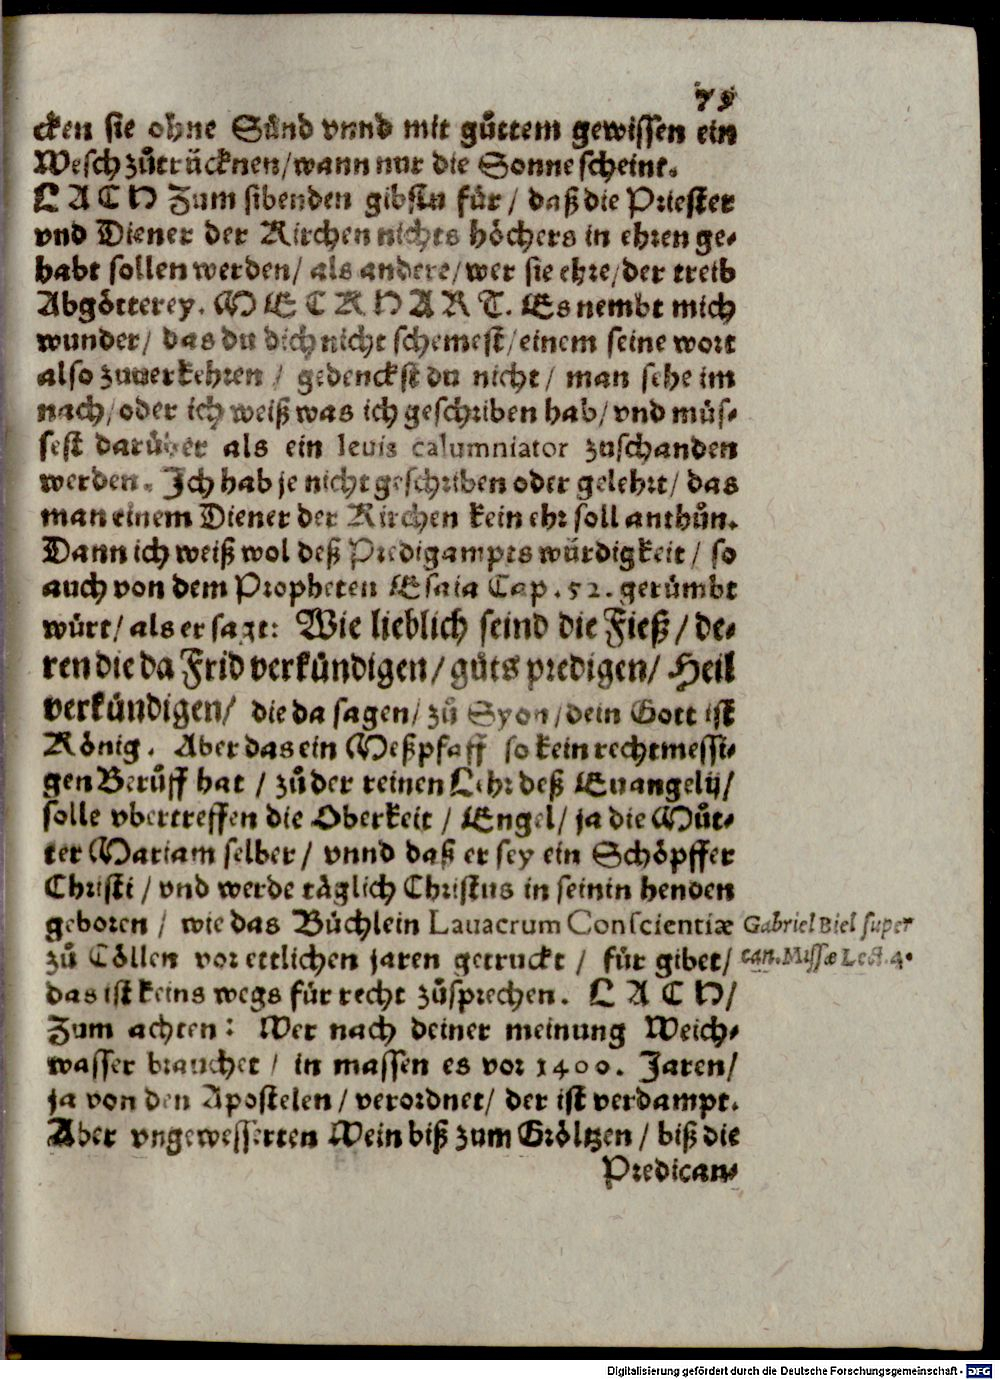 79
cken sie ohne Sünd vnnd mit gůttem gewissen ein
Wesch zůtrücknen/wann nur die Sonne scheint.
LACH Zum sibenden gibstu für/ daß die Priester
vnd Diener der Kirchen nichts höchers in ehren ge-
habt sollen werden/ als andere/wer sie ehre/der treib
Abgötterey. MECKHART. Es nembt mich
wunder/ das du dich nicht schemest/einem seine wort
also zuuerkehren / gedenckst du nicht/ man sehe im
nach/oder ich weiß was ich geschriben hab/vnd müs-
sest darüber als ein leuis calumniator zuschanden
werden. Ich hab je nicht geschriben oder gelehrt/ das
man einem Diener der Kirchen kein ehr soll anthůn.
Dann ich weiß wol deß Predigampts würdigkeit/ so
auch von dem Propheten Esaia Cap. 52. gerümbt
würt/als er sagt: Wie lieblich seind die Fieß/de-
ren die da Frid verkündigen/gůts predigen/Heil
verkündigen/ die da sagen/ zů Syon/dein Gott ist
König. Aber das ein Meßpfaff so kein rechtmessi-
gen Berůff hat / zů der reinen Lehr deß Euangelij/
solle vbertreffen die Oberkeit / Engel/ ja die Můt-
ter Mariam selber/ vnnd daß er sey ein Schöpffer
Christi/vnd werde täglich Christus in seinin henden
geboren / wie das Büchlein Lauacrum Conscientiæ
zů Cöllen vor ettlichen jaren getruckt / für gibet/
das ist keins wegs für recht zůsprechen. LACH/
Zum achten: Wer nach deiner meinung Weich-
wasser brauchet / in massen es vor 1400. Jaren/
ja von den Apostelen/verordnet/ der ist verdampt.
Aber vngewesserten Wein biß zum Gröltzen/biß die
Predican-
Gabriel Biel super
can. Missæ Lect. 4.
Digitalisierung gefördert durch die Deutsche Forschungsgemeinschaft - DFG